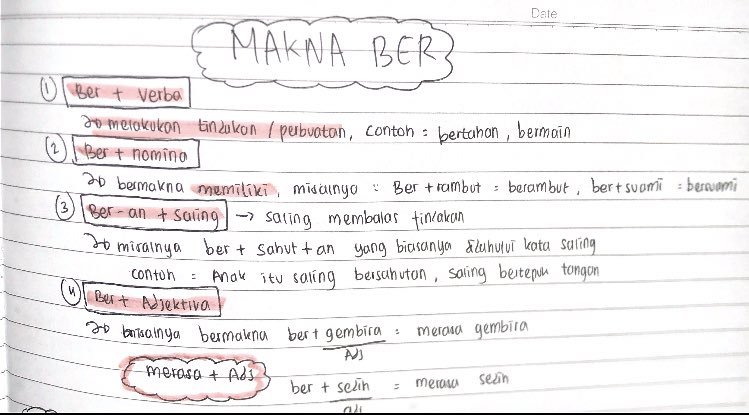 Date
MAKNA BER
1 Ber + verba
→ melakukan tindakan / perbuatan, contoh = bertahan, bermain
2 Ber + nomina
→ bermakna memiliki, misalnya = Ber + rambut = berambut, ber + suami = bersuami
3 Ber-an + saling → saling membalas tindakan
→ misalnya ber + sahut + an yang biasanya didahului kata saling
contoh = Anak itu saling bersahutan, saling bertepuk tangan
4 Ber + Adjektiva
→ misalnya bermakna ber + gembira = merasa gembira
Adj
merasa + Adj
ber + sedih = merasa sedih
adj